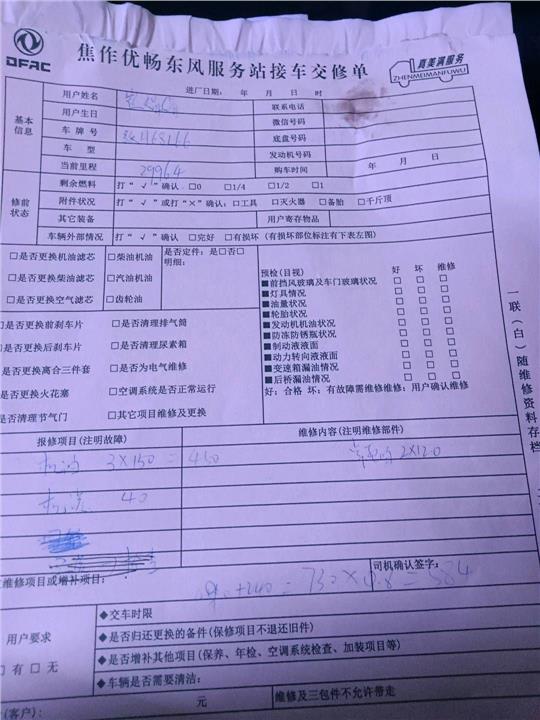 DFAC
焦作优畅东风服务站接车交修单
真美满服务
ZHENMEIMANFUWU
进厂日期： 年 月 日 时
基本信息
用户姓名 联系电话
用户生日 微信号码
车牌号 H68166 底盘号码
车型 发动机号码
当前里程 29964 购车时间 年 月 日
修前状态
剩余燃料 打“√”确认 □0 □1/4 □1/2 □1
附件状况 打“√”或打“×”确认：□工具 □灭火器 □备胎 □千斤顶
其它装备 用户寄存物品
车辆外部情况 打“√”确认 □完好 □有损坏（有损坏部位标注有下表左图）
□是否更换机油滤芯 □柴油机油 是否定件：是□否□
明细：
□是否更换柴油滤芯 □汽油机油
□是否更换空气滤芯 □齿轮油
□是否更换前刹车片 □是否清理排气筒
□是否更换后刹车片 □是否清理尿素箱
是否更换离合三件套 □是否为电气维修
是否更换火花塞 □空调系统是否正常运行
是否清理节气门 □其它项目维修及更换
预检(目视) 好 坏 维修
■前挡风玻璃及车门玻璃状况 □ □ □
■灯具情况 □ □ □
■油量状况 □ □ □
■轮胎状况 □ □ □
■发动机机油状况 □ □ □
■防冻防锈瓶状况 □ □ □
■制动液液面 □ □ □
■动力转向液液面 □ □ □
■变速箱漏油情况 □ □ □
■后桥漏油情况 □ □ □
好：合格 坏：有故障需维修维修：用户确认维修
一联（白）随维修资料存档
报修项目(注明故障) 维修内容(注明维修部件)
机油 3×150=450 2×120
机滤 40
维修项目或增补项目： 司机确认签字：
+240=730×0.8=584
用户要求
□有 □无
◆交车时限
◆是否归还更换的备件(保修项目不退还旧件)
◆是否增补其他项目(保养、年检、空调系统检查、加装项目等)
◆车辆是否需要清洁：
(客户)： 元 维修及三包件不允许带走